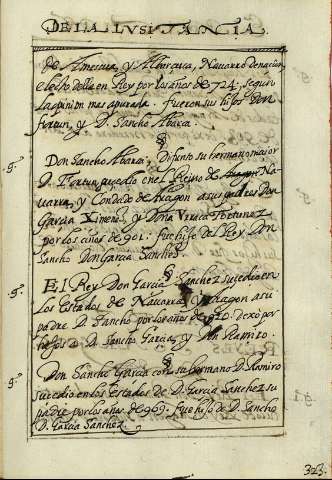 DE LA LVSITANIA.
de Amescua, y Abarcuca, Navarro de nacion
electo della en Rey por los años de 724. segun
la opinion mas apurada. fueron sus hijos Don
fortun, y D. Sancho Abarca.
§
Don Sancho Abarca, Difunto su hermano maior
D. Fortun sucedio en el Reino de Na
uarra, y Condado de Aragon a sus padres Don
Garcia Ximenez, y Doña Vrraca Fortunez
por los años de 901. fue hijo del Rey Don
Sancho Don Garcia Sanchez
§
El Rey Don Garcia Sanchez sucedio en
los Estados de Nauarra, y Aragon a su
padre D. Sancho por los años de 920. dexo por
hijos a D. Sancho Garcia, y Don Ramiro.
§
Don Sancho Garcia con su hermano D. Ramiro
sucedio en los Estados de D. Garcia Sanchez su
padre por los años de 969. fue hijo de D. Sancho
D. Garcia Sanchez.
323.